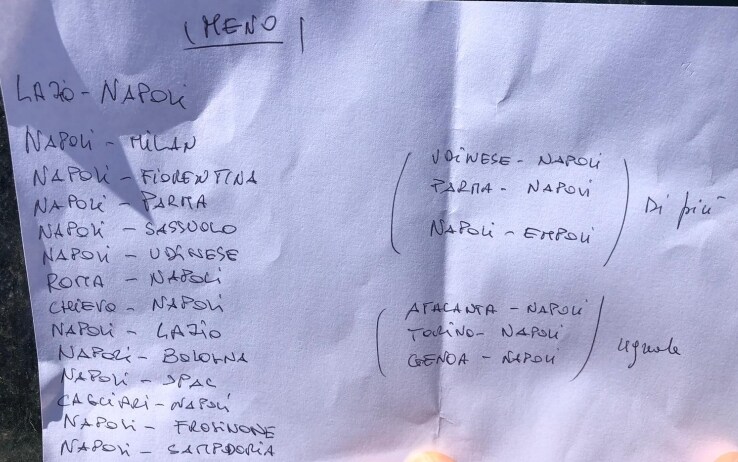 (MENO)
LAZIO - NAPOLI
NAPOLI - MILAN
NAPOLI - FIORENTINA
NAPOLI - PARMA
NAPOLI - SASSUOLO
NAPOLI - UDINESE
ROMA - NAPOLI
CHIEVO - NAPOLI
NAPOLI - LAZIO
NAPOLI - BOLOGNA
NAPOLI - SPAL
CAGLIARI - NAPOLI
NAPOLI - FROSINONE
NAPOLI - SAMPDORIA
UDINESE - NAPOLI
PARMA - NAPOLI
NAPOLI - EMPOLI
Di più
ATALANTA - NAPOLI
TORINO - NAPOLI
GENOA - NAPOLI
uguale